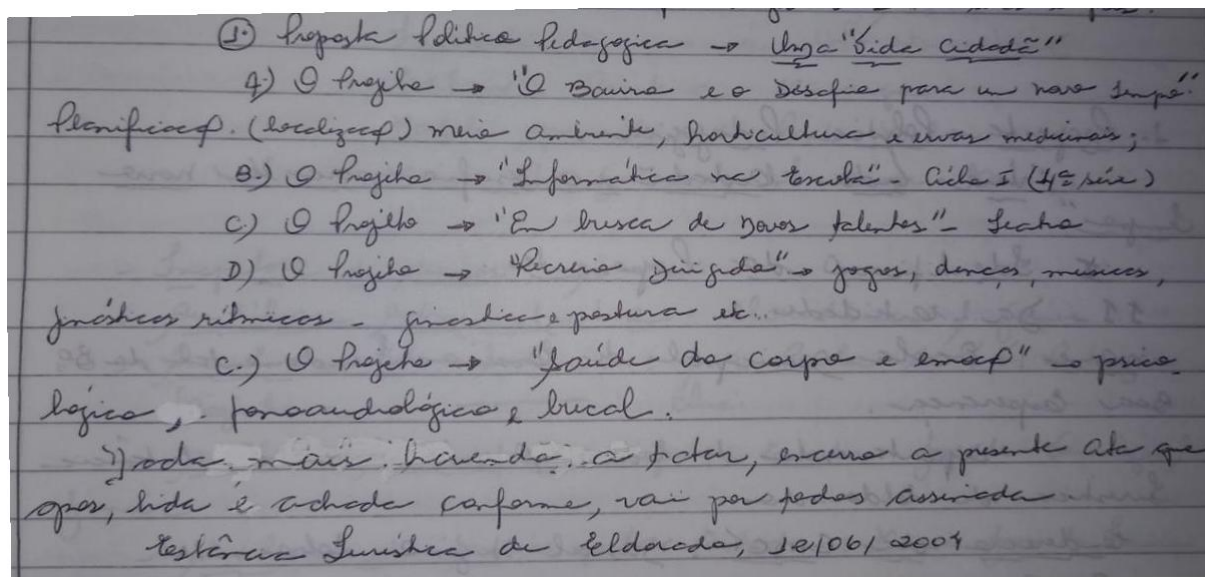 1. Proposta Politica Pedagogica → Uma "Vida Cidadã"
A) O Projeto → "O Bairro e o Desafio para um novo tempo"
(localizaçº) meio ambiente, horticultura e ervas medicinais;
B.) O Projeto → "Informática na Escola" - Ciclo I (4ª série)
C.) O Projeto → "Em busca de novos talentos" - Teatro
D) O Projeto → "Recreio Dirigido" → jogos, danças, músicas,
ginásticas rítmicas - ginástica e postura etc..
C.) O Projeto → "Saúde do corpo e emoçº" → psico-
lógico, fonoaudiológico e bucal.
Nada mais havendo a tratar, encerro a presente ata que
após, lida e achada conforme, vai por todos assinada
Estância Turística de Eldorado, /06/